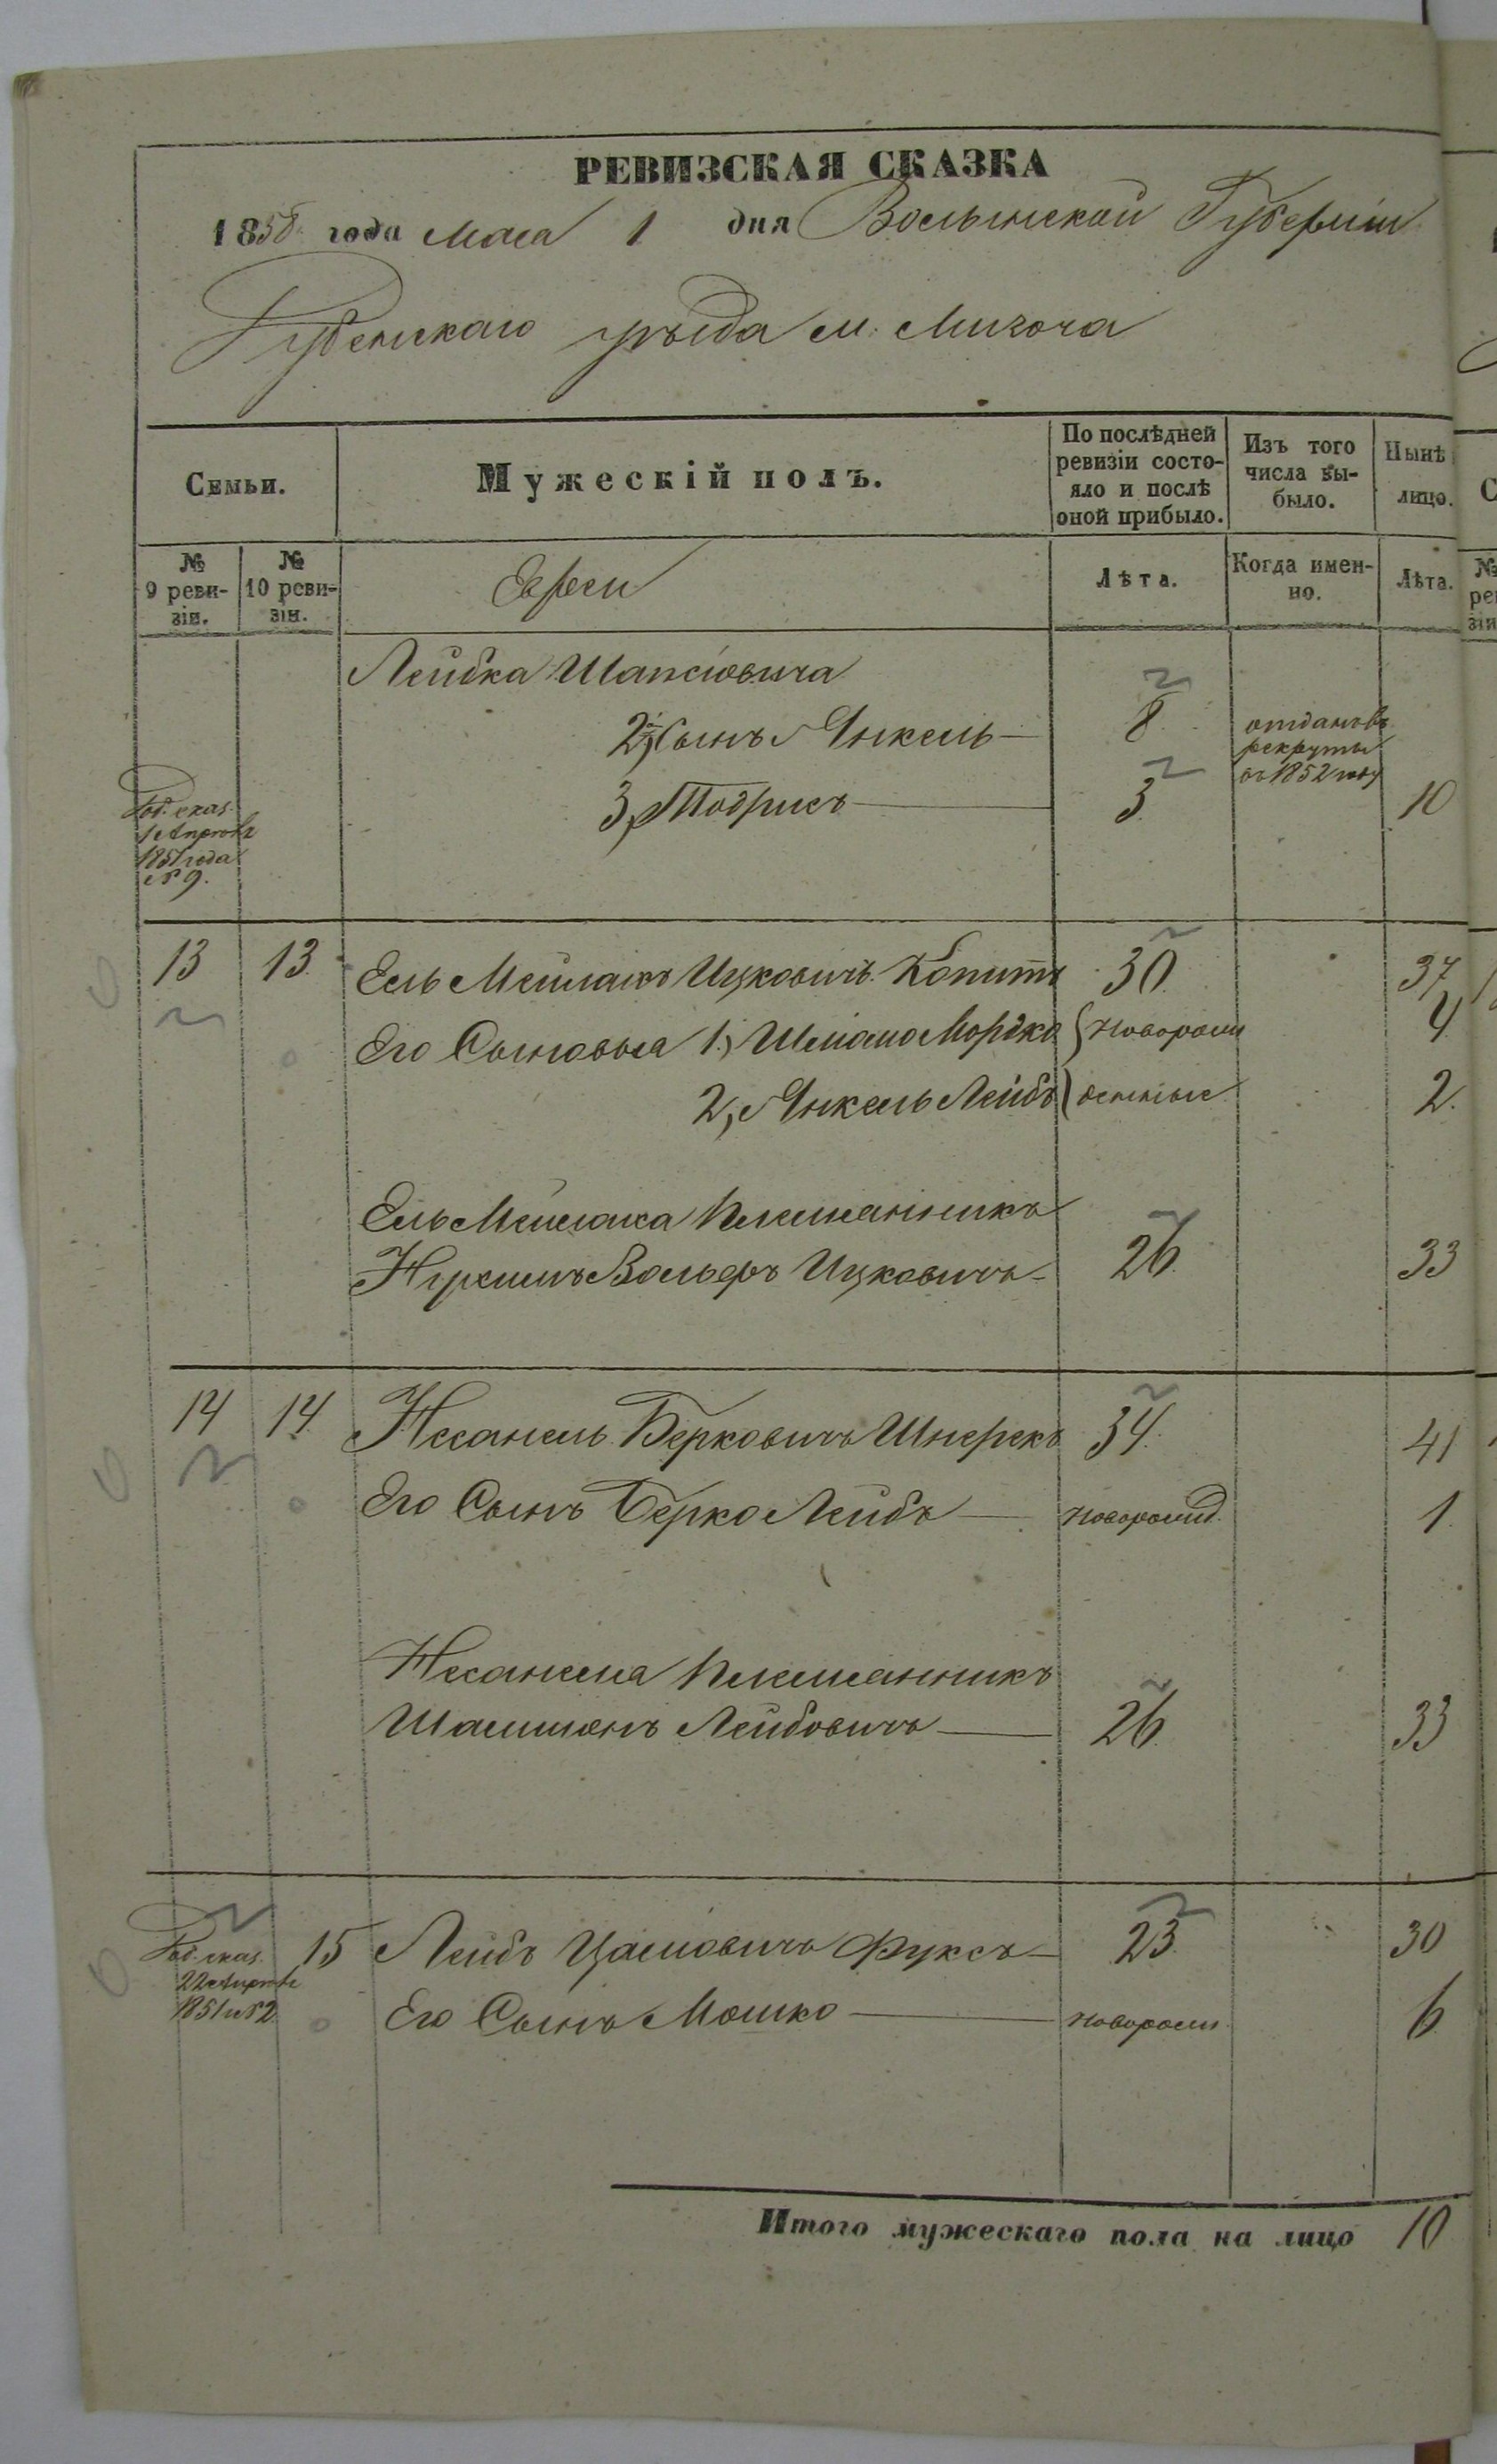 РЕВИЗСКАЯ СКАЗКА
1858 года Мая 1 дня Волынской Губерніи
Дубенскаго уѣзда м. Мизоча
Семьи.
Мужескій полъ.
По послѣдней ревизіи состояло и послѣ оной прибыло.
Изъ того числа выбыло.
Нынѣ лицо.
№ 9 ревизіи.
№ 10 ревизіи.
Евреи
Лѣта.
Когда именно.
Лѣта.
Лейбка Шапсіовича
2й Сынъ Янкель 8 отданъ въ рекруты въ 1852 году
3, Тодрисъ 3 10
1851 года
№ 9.
13 13 Ель Мейлахъ Ицковичъ Копитъ 30 37
Его Сыновья 1, Шліомо Мордко новорож 4
2, Янкель Лейбъ денные 2
Ель Мейлаха племянникъ
Вольфъ Ицковичъ 26 33
14 14 Беркович Шнерекъ 34 41
Его Сынъ Берко Лейбъ новорожд. 1
племянникъ
Лейбовичъ 26 33
22 Апреля
1851 №2
15 Лейбъ Фуксъ 23 30
Его Сынъ Мошко новорож. 6
Итого мужескаго пола на лицо 10